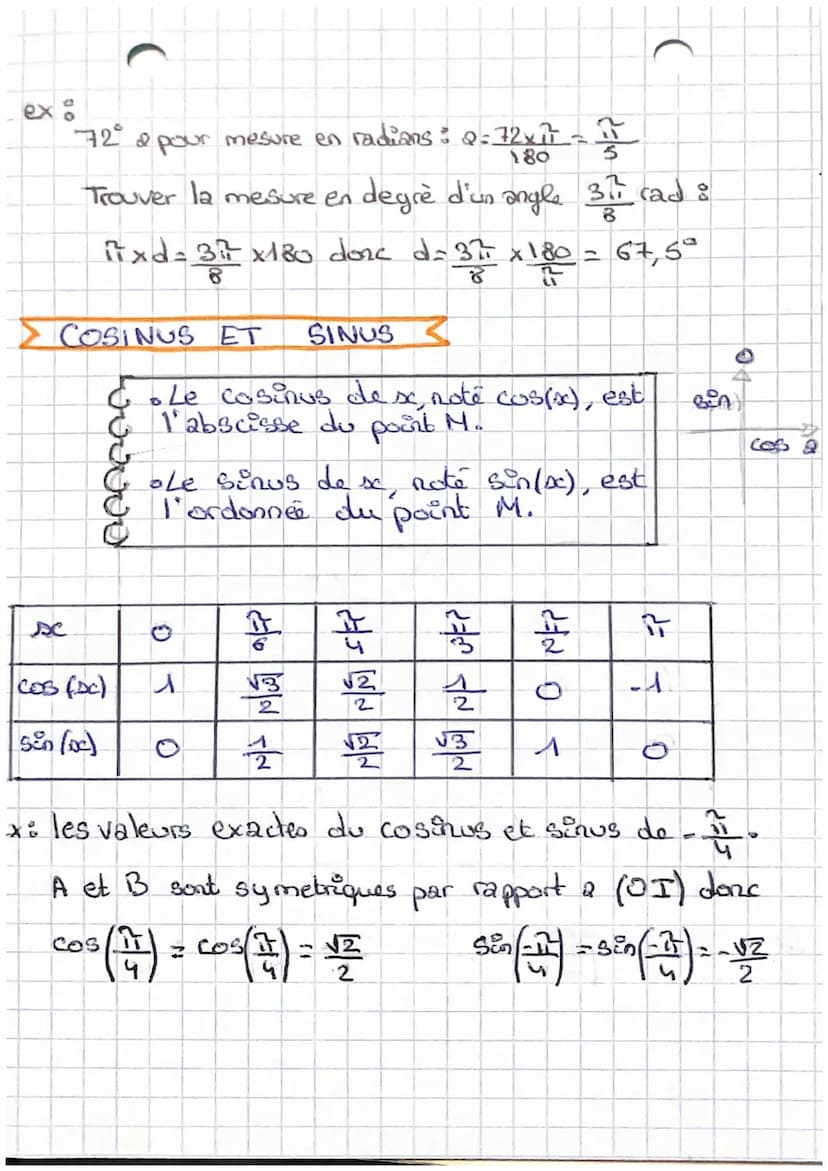 ex :
72° a pour mesure en radians : a = 72×π/180 = π/5
Trouver la mesure en degrè d'un angle 3π/8 rad :
π×d = 3π/8 ×180 donc d = 3π/8 × 180/π = 67,5°
COSINUS ET SINUS
• Le cosinus de x, noté cos(x), est
l'abscisse du point M.
• Le sinus de x, noté sin(x), est
l'ordonnée du point M.
sin
cos
x 0 π/6 π/4 π/3 π/2 π
cos(x) 1 √3/2 √2/2 1/2 0 -1
sin(x) 0 1/2 √2/2 √3/2 1 0
x : les valeurs exactes du cosinus et sinus de -π/4.
A et B sont symetriques par rapport a (OI) donc
cos(π/4) = cos(π/4) = √2/2 sin(-π/4) = sin(-π/4) = -√2/2